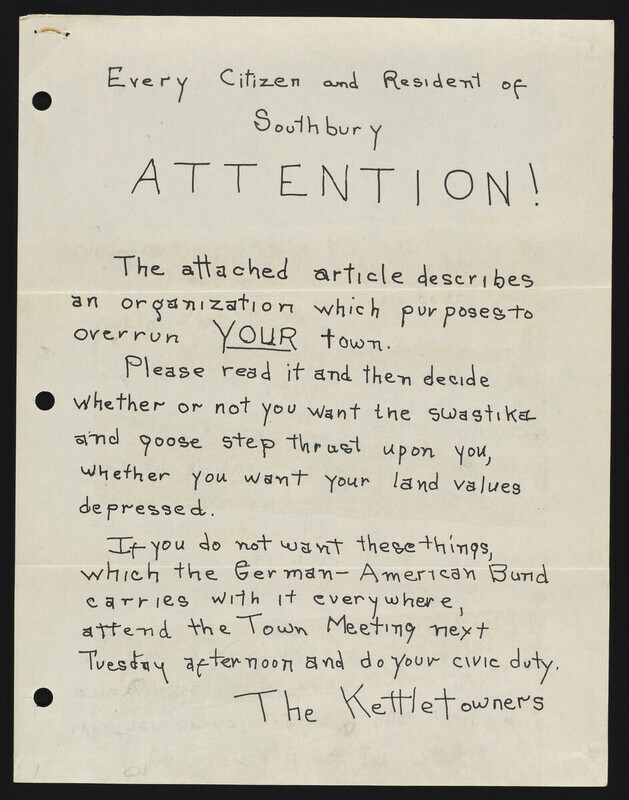 Every Citizen and Resident of
Southbury
ATTENTION!
The attached article describes
an organization which purposes to
overrun YOUR town.
Please read it and then decide
whether or not you want the swastika
and goose step thrust upon you,
whether you want your land values
depressed.
If you do not want these things,
which the German-American Bund
carries with it everywhere,
attend the Town Meeting next
Tuesday afternoon and do your civic duty.
The Kettletowners